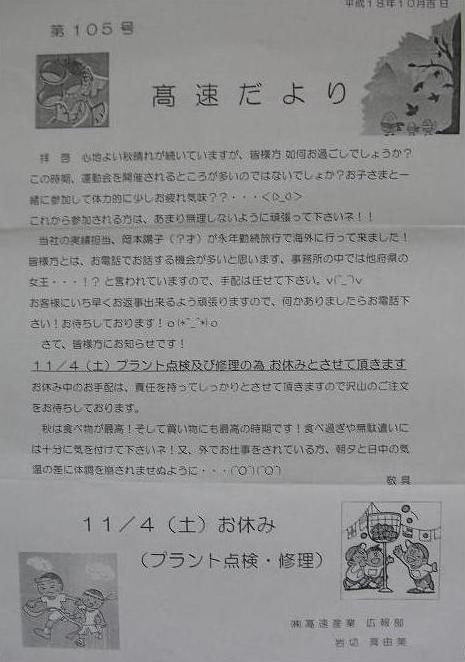 平成18年10月吉日
第105号
高速だより
拝啓 心地よい秋晴れが続いていますが、皆様方 如何お過ごしでしょうか?
この時期、運動会を開催されるところが多いのではないでしょうか?お子さまと一
緒に参加して体力的に少しお疲れ気味??・・・<(>_<)>
これから参加される方は、あまり無理しないように頑張って下さいネ!!
当社の実績担当、岡本陽子(?才)が永年勤続旅行で海外に行って来ました!
皆様方とは、お電話でお話する機会が多いと思います、事務所の中では他府県の
女王・・・!? と言われていますので、手配は任せて下さい。v(^_^)v
お客様にいち早くお返事出来るよう頑張りますので、何かありましたらお電話下
さい!お待ちしております!o(*^_^*)o
さて、皆様方にお知らせです!
11/4(土)プラント点検及び修理の為 お休みとさせて頂きます
お休み中のお手配は、責任を持ってしっかりとさせて頂きますので沢山のご注文
をお待ちしております。
秋は食べ物が最高!そして買い物にも最高の時期です!食べ過ぎや無駄遣いに
は十分に気を付けて下さいネ!又、外でお仕事をされている方、朝夕と日中の気
温の差に体調を崩されませぬように・・・(^O^)(^O^)
敬具
11/4(土)お休み
(プラント点検・修理)
㈱高速産業 広報部
岩切 真由美